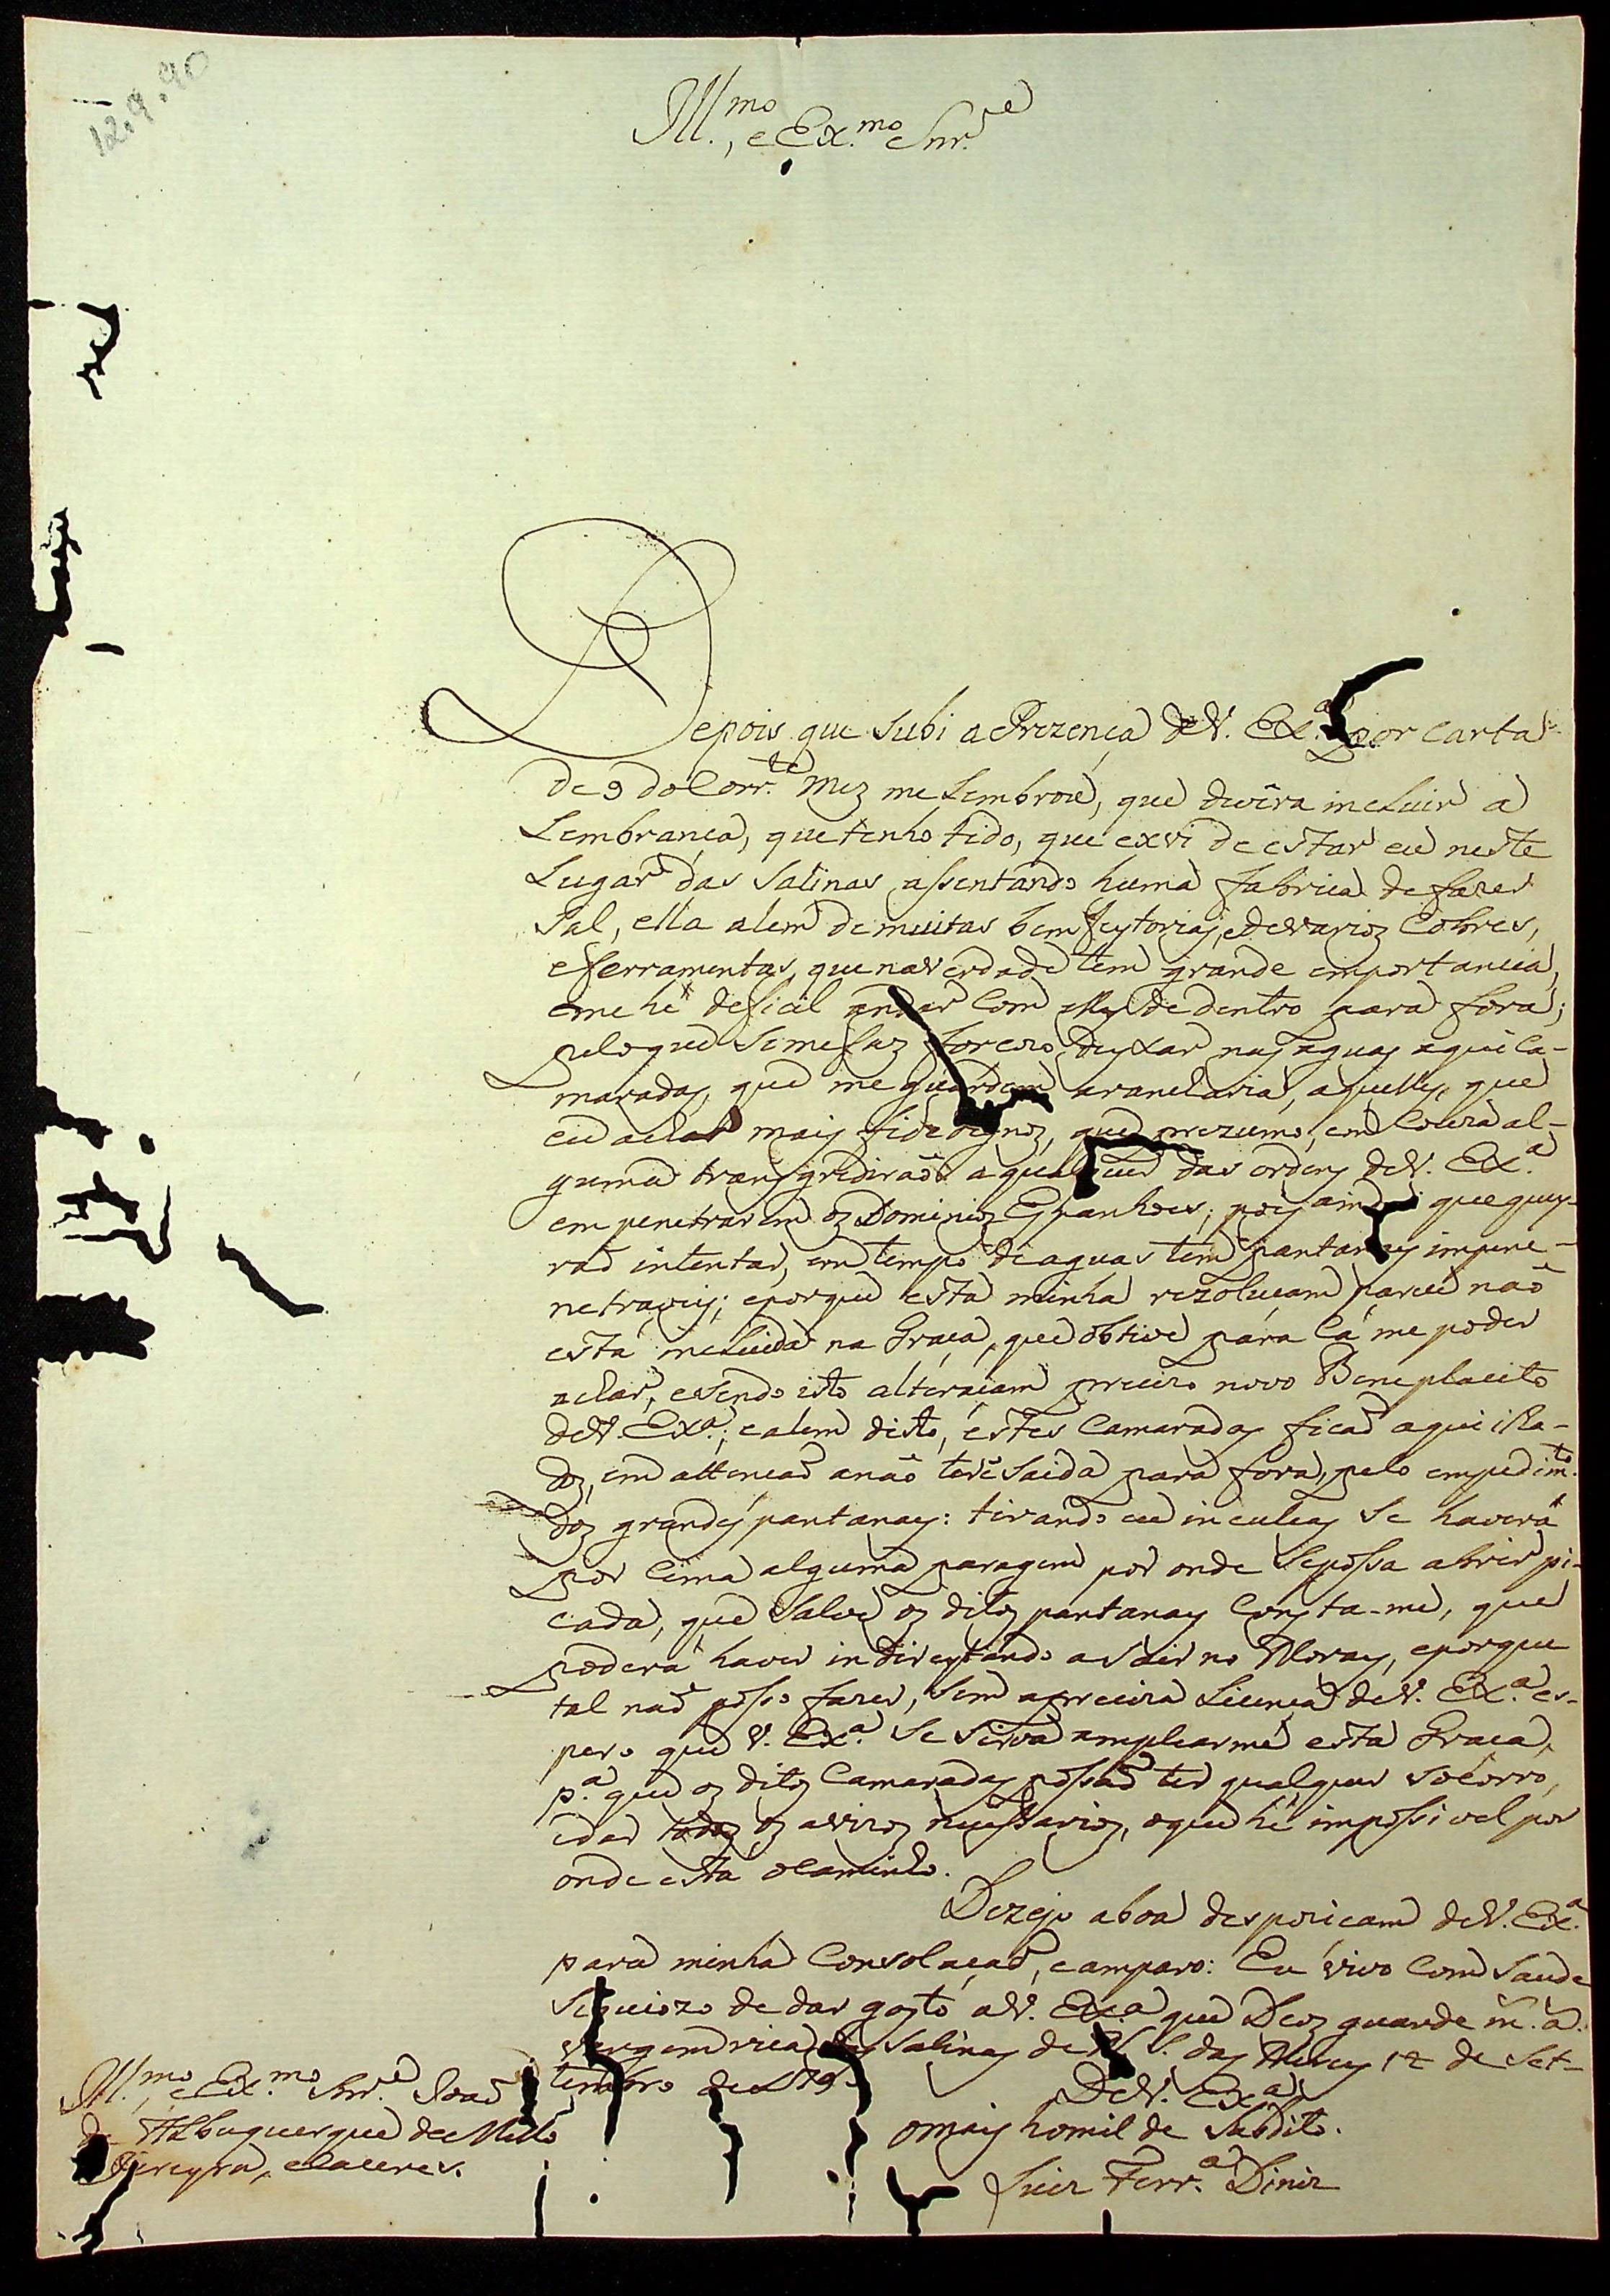 12.9.90
Ill.mo, e Ex.mo Snr.e
Depois que Subi a Prezença de V. Ex.a por carta
de 9 do Corr.te Mez me Lembrou, que devêra incluir a
Lembrança, que tenho tido, que exvi de estar eu neste
Lugar das Salinas assentando huma fabrica de fazer
Sal, ella alem de muitas bemfeytorias, e de varioz Cobres,
e ferramentas, que na verdade tem grande emportancia,
e me hé deficil andar Com ellas de dentro para fora;
pelo que Se me faz forcozo deyxar nas aguas aqui Ca-
maradas, que me guardem a rancharia, aquelles, que
eu achar mais fidedignoz, que prezumo, em Couza al-
guma transgridiraõ a qualquer das ordens de V. Ex.a
em penetrarem oz Dominioz Espanhoes; pois ainda que quey-
raõ intentar, em tempo de aguas tem pantanaes impene-
netraveis; e porque esta minha rezoluçam parece naõ
está incluida na Graça, que obtive para cá me poder
achar, e sendo isto alteraçam precizo novo Beneplacito
de V. Exa.; e alem disto, estes Camaradas ficaõ aqui ilha-
doz, em attençaõ a naõ terẽ Saida para fora, pelo empedim.to
doz grandes pantanaes: tirando eu inculcas Se haverá
por Cima alguma paragem por onde Sepossa abrir pi-
cada, que Salve oz ditoz pantanaes Consta-me, que
poderá haver indireytando a Sair no Moraes, e porque
tal naõ posso fazer, Sem a preciza Licença de V. Ex.a es-
pero que V. Ex.a Se Sirva ampliarme esta Graça,
p.a que oz ditoz Camaradas possaõ ter qualquer Socorro,
e dar todoz oz avizoz neçessarioz, o que hé impossivel por
onde está o Caminho.
Dezejo a boa despoziçam de V. Ex.a
para minha Consolaçaõ, e amparo: Eu vivo Com Saude
Sequiozo de dar gosto a V. Ex.a que Deoz guarde m.s a.s
Salinas de N. S. das Merces 12 de Set-
tembro de 179
De V. Ex.a
o mais homil de Subdito.
Luiz Ferr.a Diniz
Ill.mo, e Ex.mo Snr.e Joaõ
de Albuquerque de Mello
Pereyra, e Caceres.